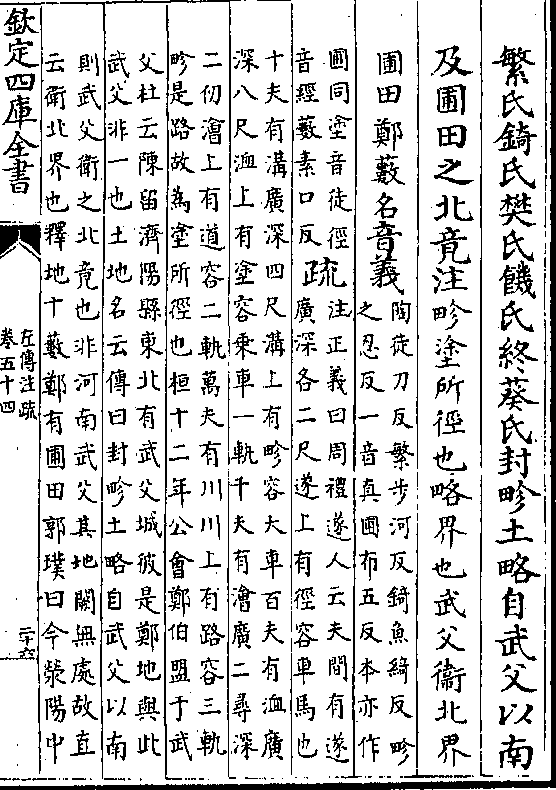 繁氏錡氏樊氏饑氏終葵氏封畛土略自武父以南
及圃田之北竟注畛塗所徑也略界也武父衞北界
圃田鄭藪名音義
陶徒刀反繁步河反錡魚綺反畛
之忍反一音真圃布五反本亦作
圃同塗音徒徑
音經藪素口反
疏
注正義曰周禮遂人云夫間有遂
廣深各二尺遂上有徑容車馬也
十夫有溝廣深四尺溝上有畛容大車百夫有洫廣
深八尺洫上有塗容乘車一軌千夫有澮廣二尋深
二仞澮上有道容二軌萬夫有川川上有路容三軌
畛是路故為塗所徑也桓十二年公會鄭伯盟于武
父杜云陳留濟陽縣東北有武父城彼是鄭地與此
武父非一也土地名云傳曰封畛土略自武父以南
則武父衛之北竟也非河南武父其地闕無處故直
云衛北界也釋地十藪鄭有圃田郭璞曰今滎陽中
欽定四庫全書
左傳注疏
卷五十四
二十六